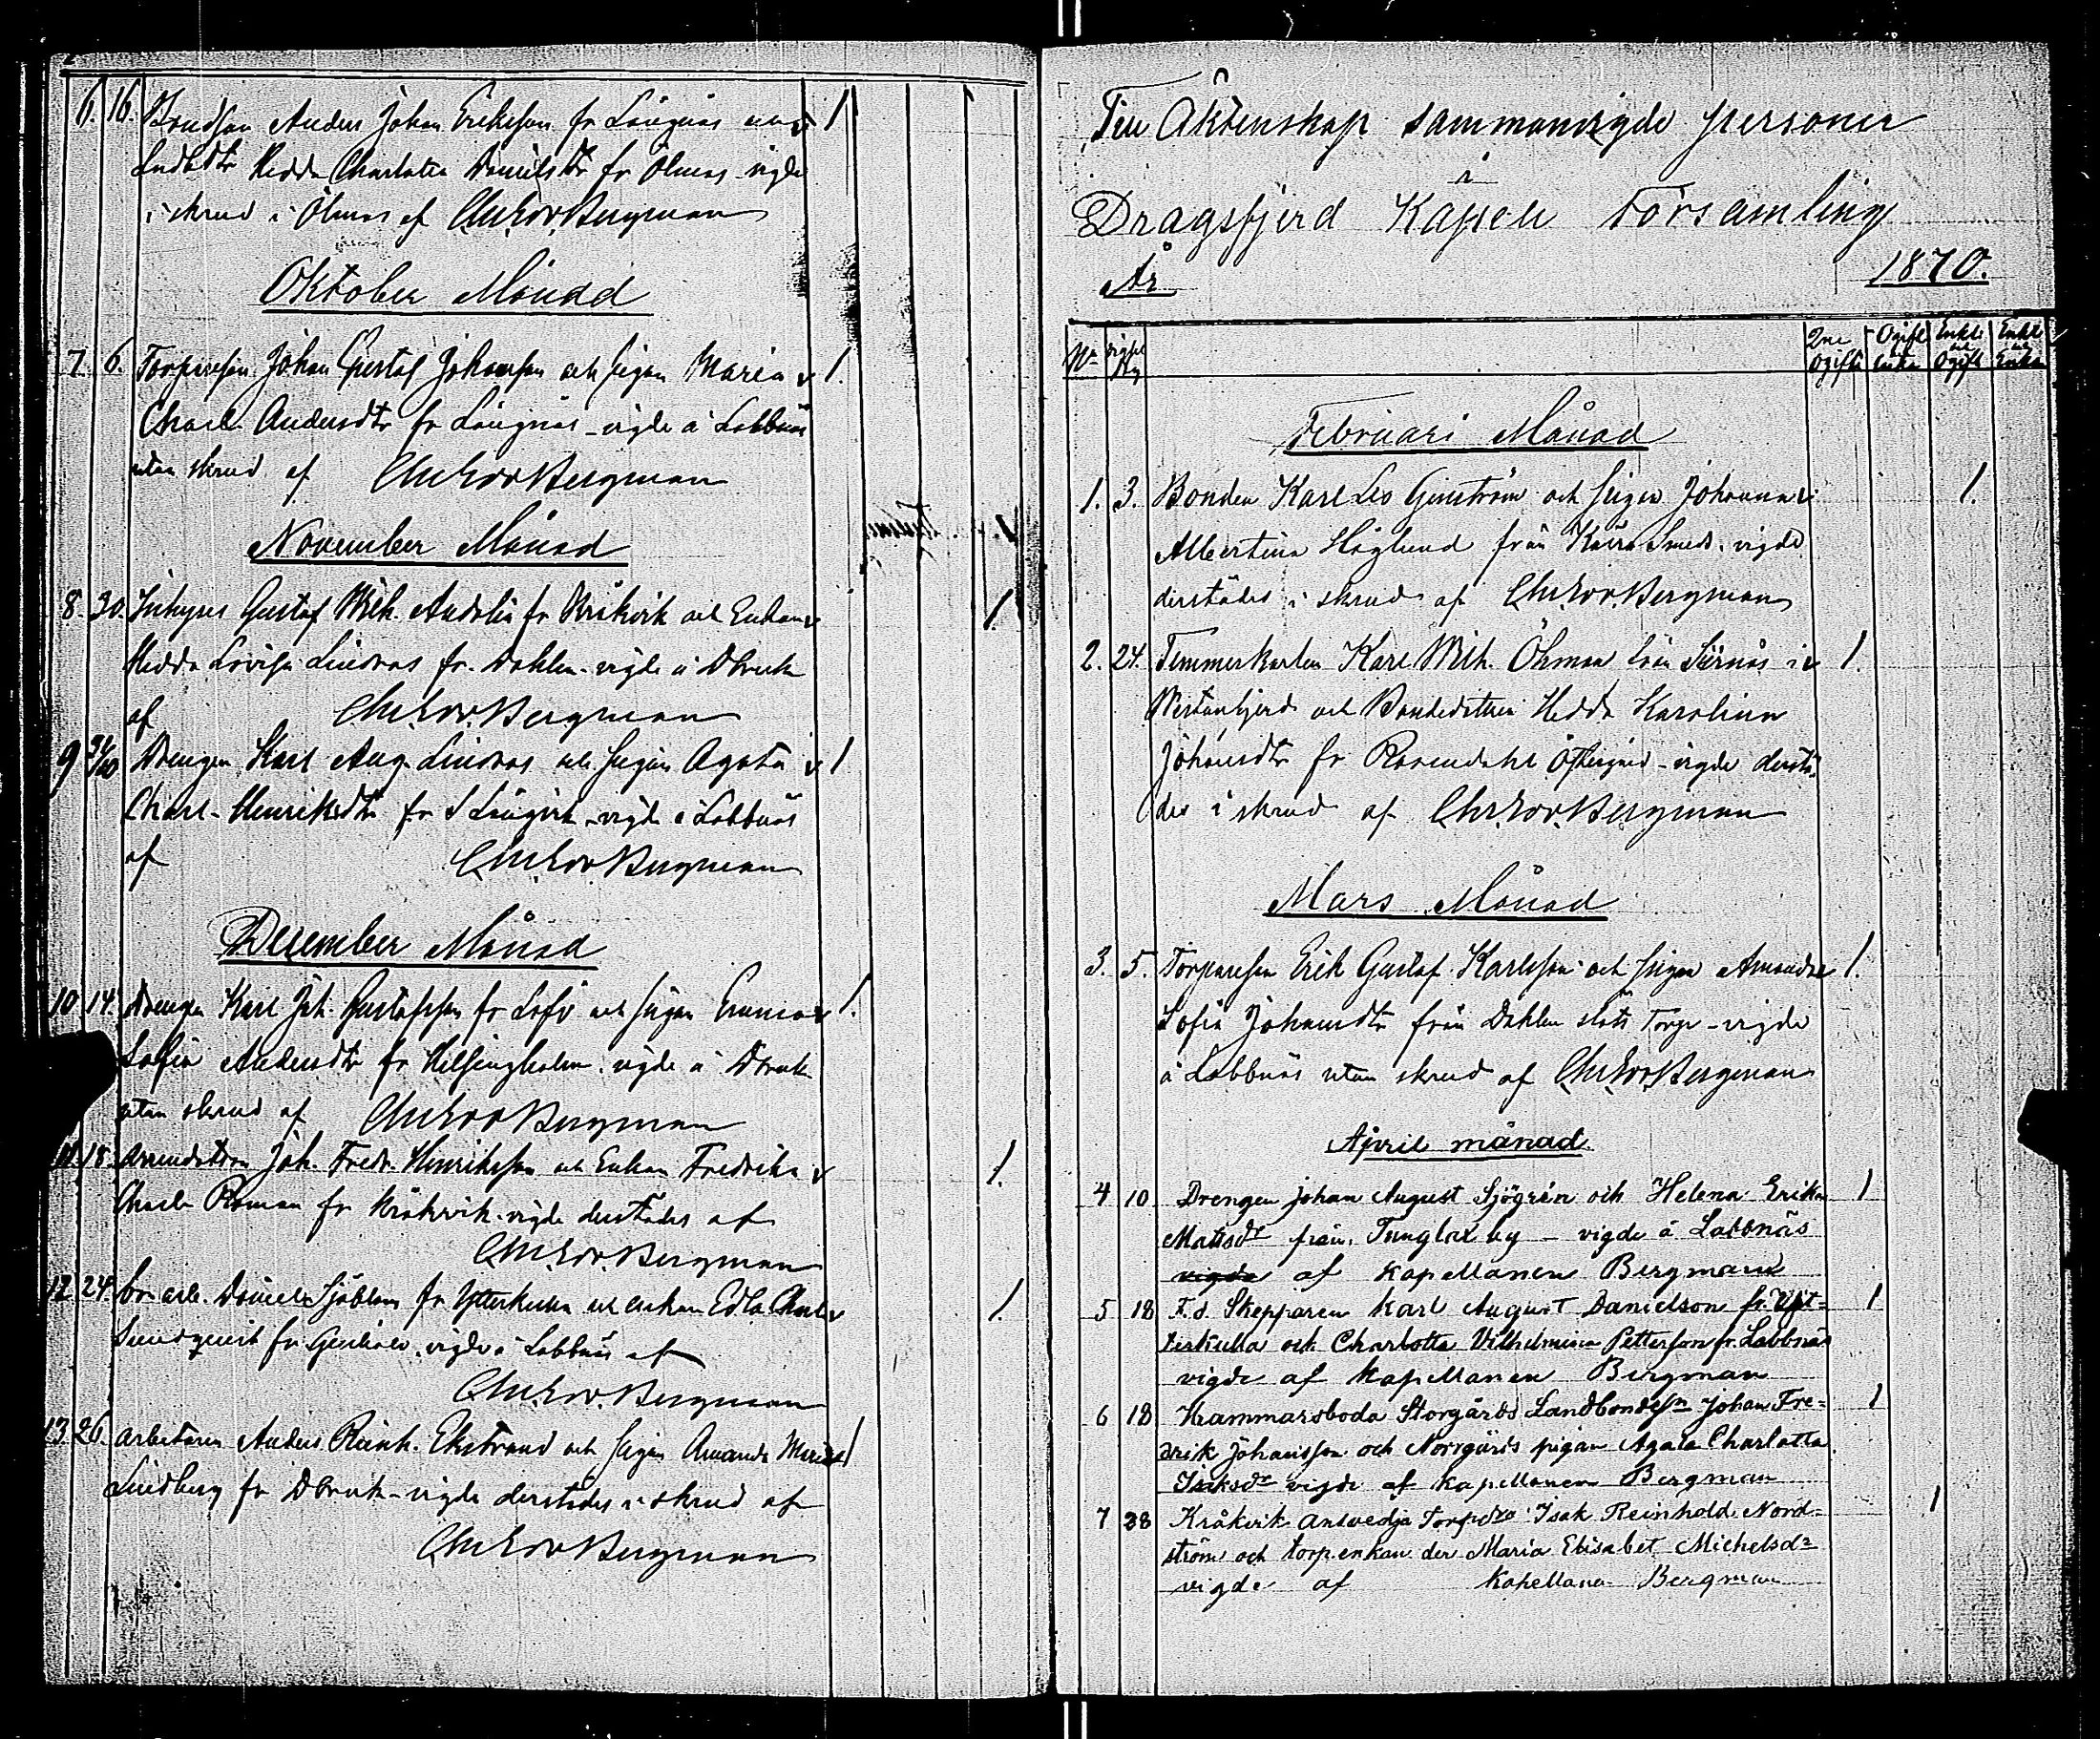 6. 16. Bondson Anders Johan Eriksson fr Långnäs och 1
Hedda Charlotta Danielsdtr fr Ölmos vigde
i skrud i Ölmos af Chr Edv. Bergman
Oktober Månad
7. 6. Torpareson Johan Gustaf Johansson och pigan Maria 1.
Charl. Andersdtr fr Långnäs - vigde å Labbnäs
utan skrud af Chr Edv Bergman
November Månad
8. 30. Inhyses Gustaf Wilh. Andelin fr Kråkvik och Enkan 1.
Hedda Lovisa Lindroos fr. Dahlen vigde å Dbruk
af Chr Edv. Bergman
9 Drengen Karl Aug. Lindroos och pigan Agata 1
Charl. Henriksdtr fr S Långvik - vigde å Labbnäs
af Chr Edv Bergman
December Månad
10. 14. Drengen Karl Joh. Gustafsson fr Löfö och pigan Emma 1.
Sofia Andersdtr fr Helsingholm vigde å Dbruk
utan skrud af Chr Edv Bergman
11. 18. Joh. Fredr. Henriksson och Enkan Fredrika 1.
Charl. Roman fr Kråkvik - vigde derstädes af
Chr Edv. Bergman
12 24. arb. Daniel Sjöblom fr Ytterkulla och enkan Edla Charl. 1.
Sundqvist fr vigde å Labbnäs af
Chr Edv. Bergman
13. 26. arbetaren Anders Reinh. Ekstrand och pigan Amanda Maria 1
Lindberg fr Dbruk - vigde derstädes i skrud af
Chr Edv Bergman
Till Äktenskap sammanvigde personer
i
Dragsfjerd Kapell Församling
År 1870.
No Vigsel dag 2ne Ogifta Ogift Enka Enkl. Ogift Enkl. Enka
Februari Månad
1. 3. Bonden Karl Leo Genström och pigan Johanna 1.
Albertina Höglund från Kärra Smeds. vigde
derstädes i skrud af Chr Edv. Bergman
2. 24. Timmerkarlen Karl Wilh. Öhman från Sirnäs i 1.
Vestanfjerd och Bondedottern Hedda Karolina
Johansdtr fr Rosendahl Östergård - vigde derstä-
des i skrud af Chr. Edv. Bergman
Mars Månad
3. 5. Torpareson Erik Gustaf Karlsson och pigan Amanda 1.
Sofia Johansdtr från Dahlen slåts Torp - vigde
å Labbnäs utan skrud af Chr Edv Bergman
April månad
4 10 Drengen Johan August Sjögrén och Helena Erika 1
Matsdr från Tunglax by - vigde å Labbnäs
vigde af kapellanen Bergman
5 18 F.d. Skepparen Karl August Danielson fr. Ytt- 1
terkulla och Charlotta Vilhelmina Petterson fr. Labbnäs
vigde af kapellanen Bergman
6 18 Krammarsboda Storgårds Landbondesn Johan Fre- 1
drik Johansson och Norrgårds pigan Agata Charlotta
Isaksdr vigde af kapellanen Bergman
7 28 Kråkvik Ansvedja Torpdr Isak Reinhold Nord- 1
ström och torp.enkan der Maria Elisabet Michelsdr
vigde af kapellanen Bergman